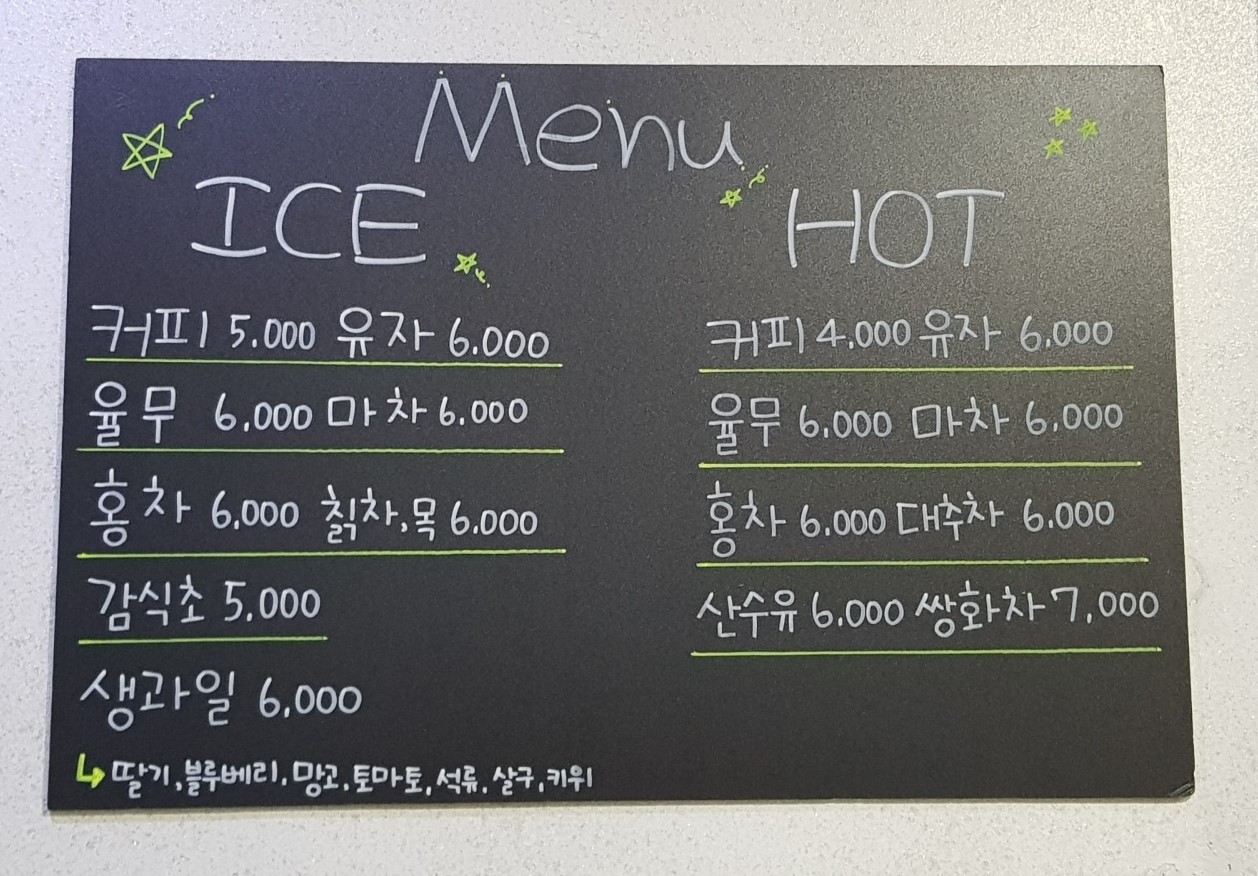 Menu
ICE
커피 5.000 유자 6.000
율무 6.000 마차 6.000
홍차 6.000 칡차,목 6.000
감식초 5.000
생과일 6.000
딸기,블루베리,망고,토마토,석류,살구,키위
HOT
커피 4.000 유자 6.000
율무 6.000 마차 6.000
홍차 6.000 대추차 6.000
산수유 6.000 쌍화차 7,000